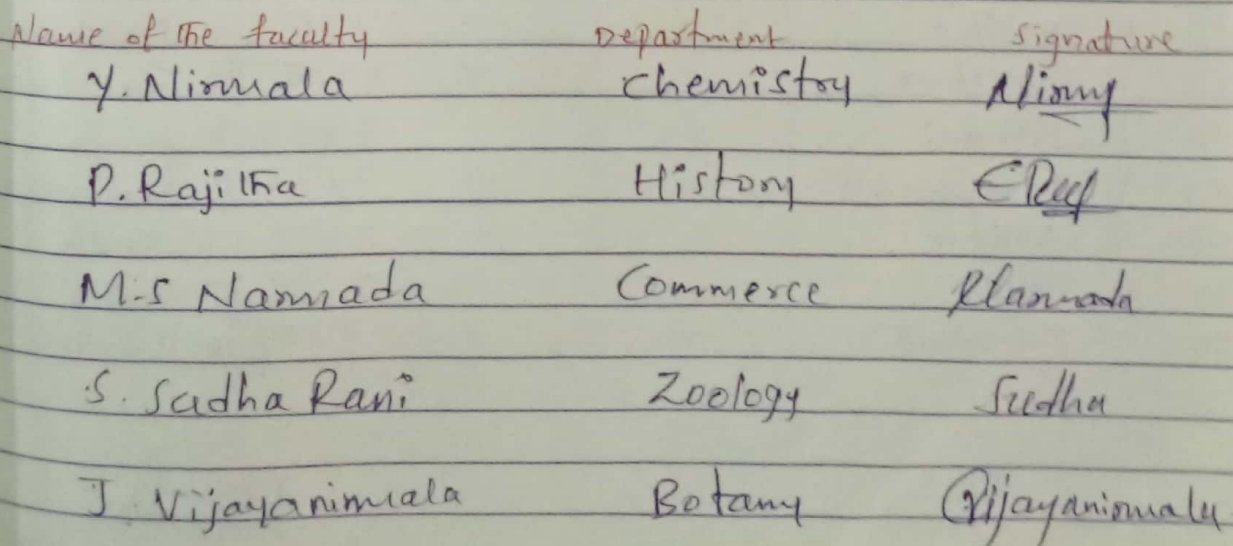 Name of the faculty Department Signature
Y. Nirmala Chemistry
P. Rajitha History
M.S Narmada Commerce Narmada
S. Sudha Rani Zoology Sudha
J. Vijayanirmala Botany Vijayanirmala